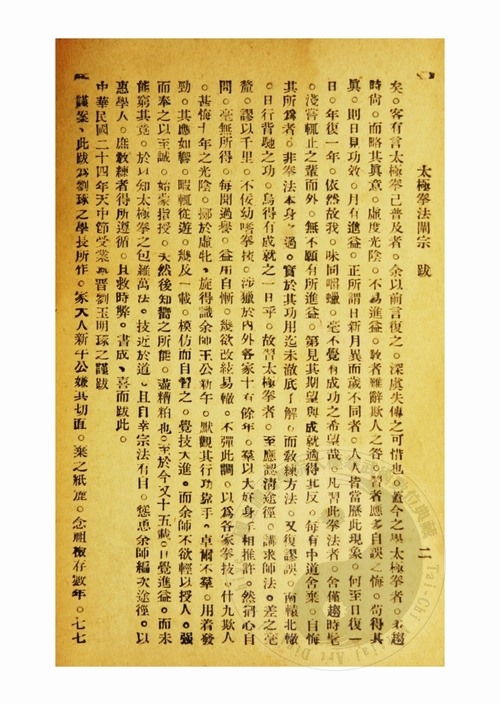 太極拳法闡宗 跋 二
矣。客有言太極拳已普及者。余以前言復之。深虞失傳之可惜也。蓋今之學太極拳者。多趨
時尚。而略其眞意。虛度光陰。不易進益。教者難辭欺人之咎。習者應多自誤之悔。苟得其
眞。則日見功效。月有進益。正所謂日新月異而歲不同者。人人皆當歷此現象。何至日復一
日。年復一年。依然故我。味同嚼蠟。毫不覺有成功之希望哉。凡習此拳法者。舍僅趨時髦
淺嘗輒止之輩而外。無不願有所進益。第見其期望與成就適得其反。每有中道舍棄。自悔
其所爲者。非拳法本身之過。實於其功用迄未澈底了解。而教練方法。又復謬誤。南轅北轍
。日行背馳之功。烏得有成就之一日乎。故習太極拳者。至應認清途徑。講求師法。差之毫
釐。謬以千里。不佞幼嗜拳技。涉獵於內外各家十有餘年。羣以大好身手相推許。然猶心自
問。毫無所得。每聞過譽。益用自慚。幾欲改絃易轍。不彈此調。以爲各家拳技。什九欺人
。甚悔十年之光陰。擲於虛牝。旋得識余師王公新午。默觀其行功靠手。卓爾不羣。用着發
勁。其應如響。暇輒從遊。幾及一載。模仿而自習之。覺技大進。而余師不欲輕以授人。強
而奉之以至誠。始蒙指授。夫然後知嚮之所能。盡糟粕也。至於今又十五載。日覺進益。而未
能窮其竟。於以知太極拳之包羅萬法。技近於道。且自幸宗法有自。慫恿余師編次途徑。以
惠學人。庶教練者得所遵循。且救時弊。書成。喜而跋此。
中華民國二十四年天中節受業 晉劉玉明琢之謹跋
謹案、此跋爲劉琢之學長所作。家大人新午公嫌其切直。棄之紙鹿。念祖檢存數年。七七